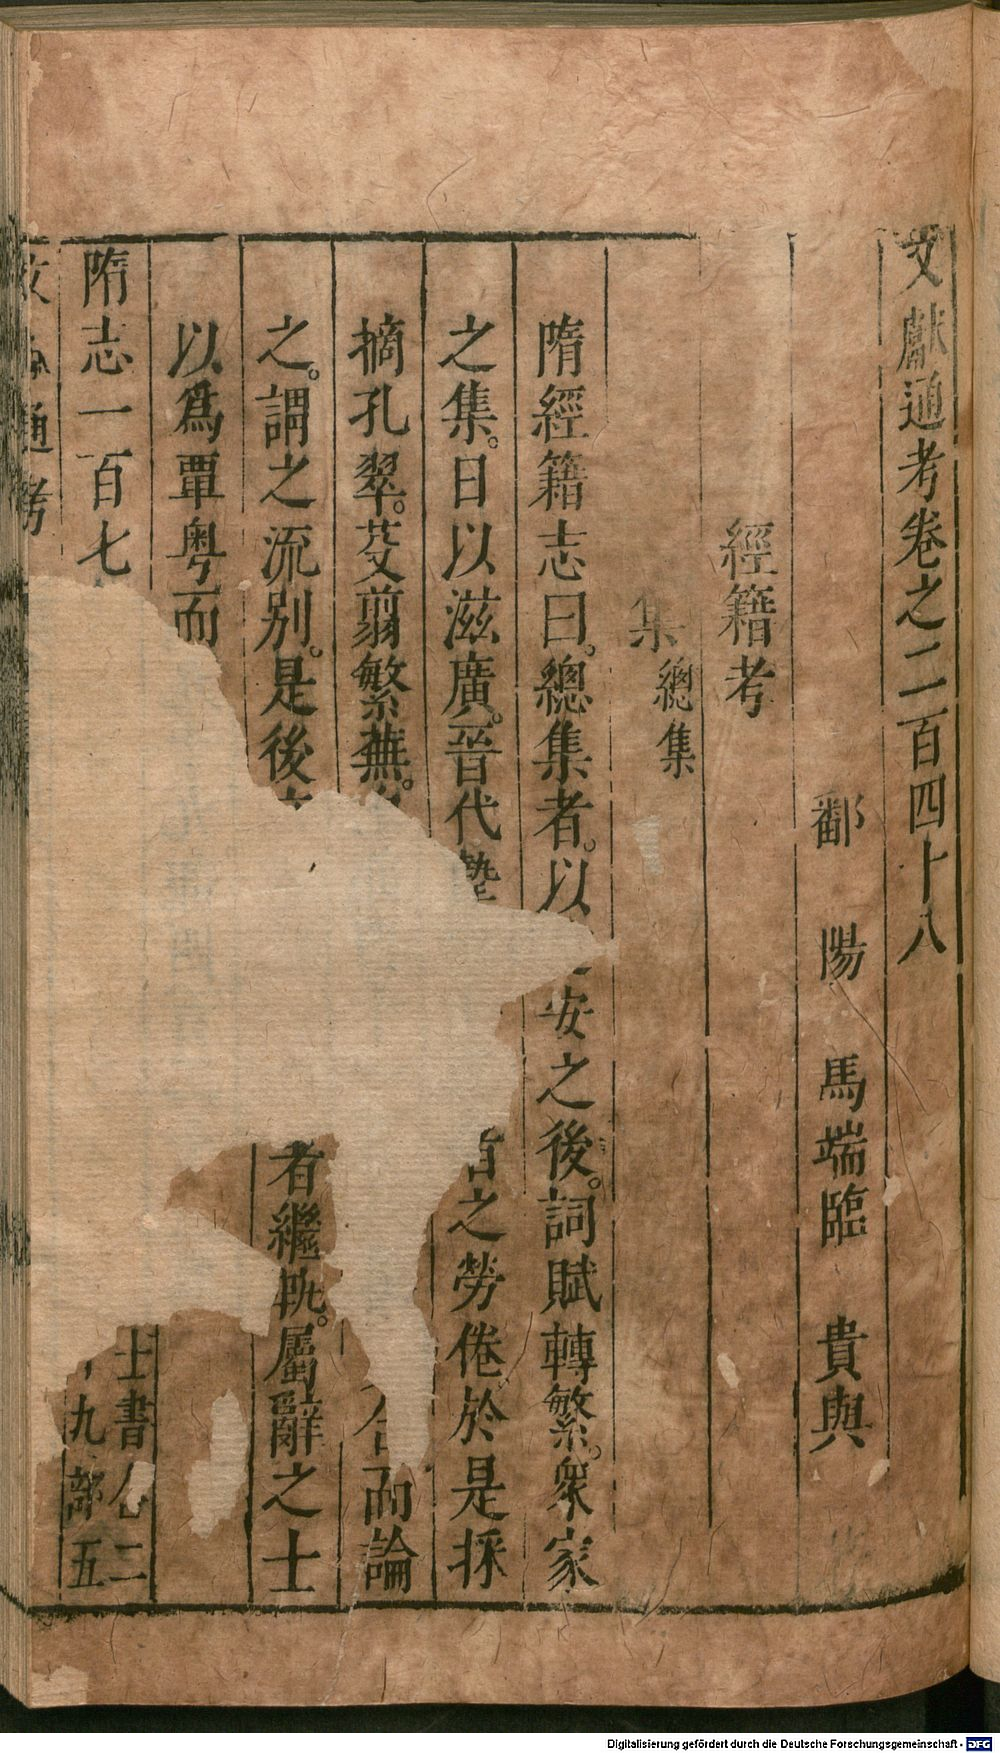 文獻通考卷之二百四十八
鄱陽馬端臨貴與
經籍考
集總集
隋經籍志曰。總集者。以安之後。詞賦轉繁。衆家
之集。日以滋廣。晉代摯之勞倦於是採
摘孔翠。芟翦繁蕪。而論
之。謂之流別。是後者繼軌。屬辭之士
以爲覃粤而士書二
隋志一百七九部五
文通考
Digitalisierung gefördert durch die Deutsche Forschungsgemeinschaft - DFG